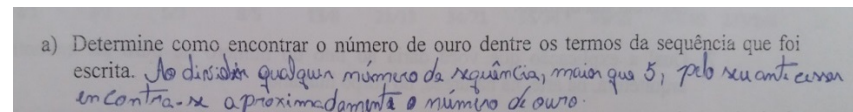 a) Determine como encontrar o número de ouro dentre os termos da sequência que foi
escrita. Ao dividir qualquer número da sequência, maior que 5, pelo seu antecessor
encontra-se aproximadamente o número de ouro.